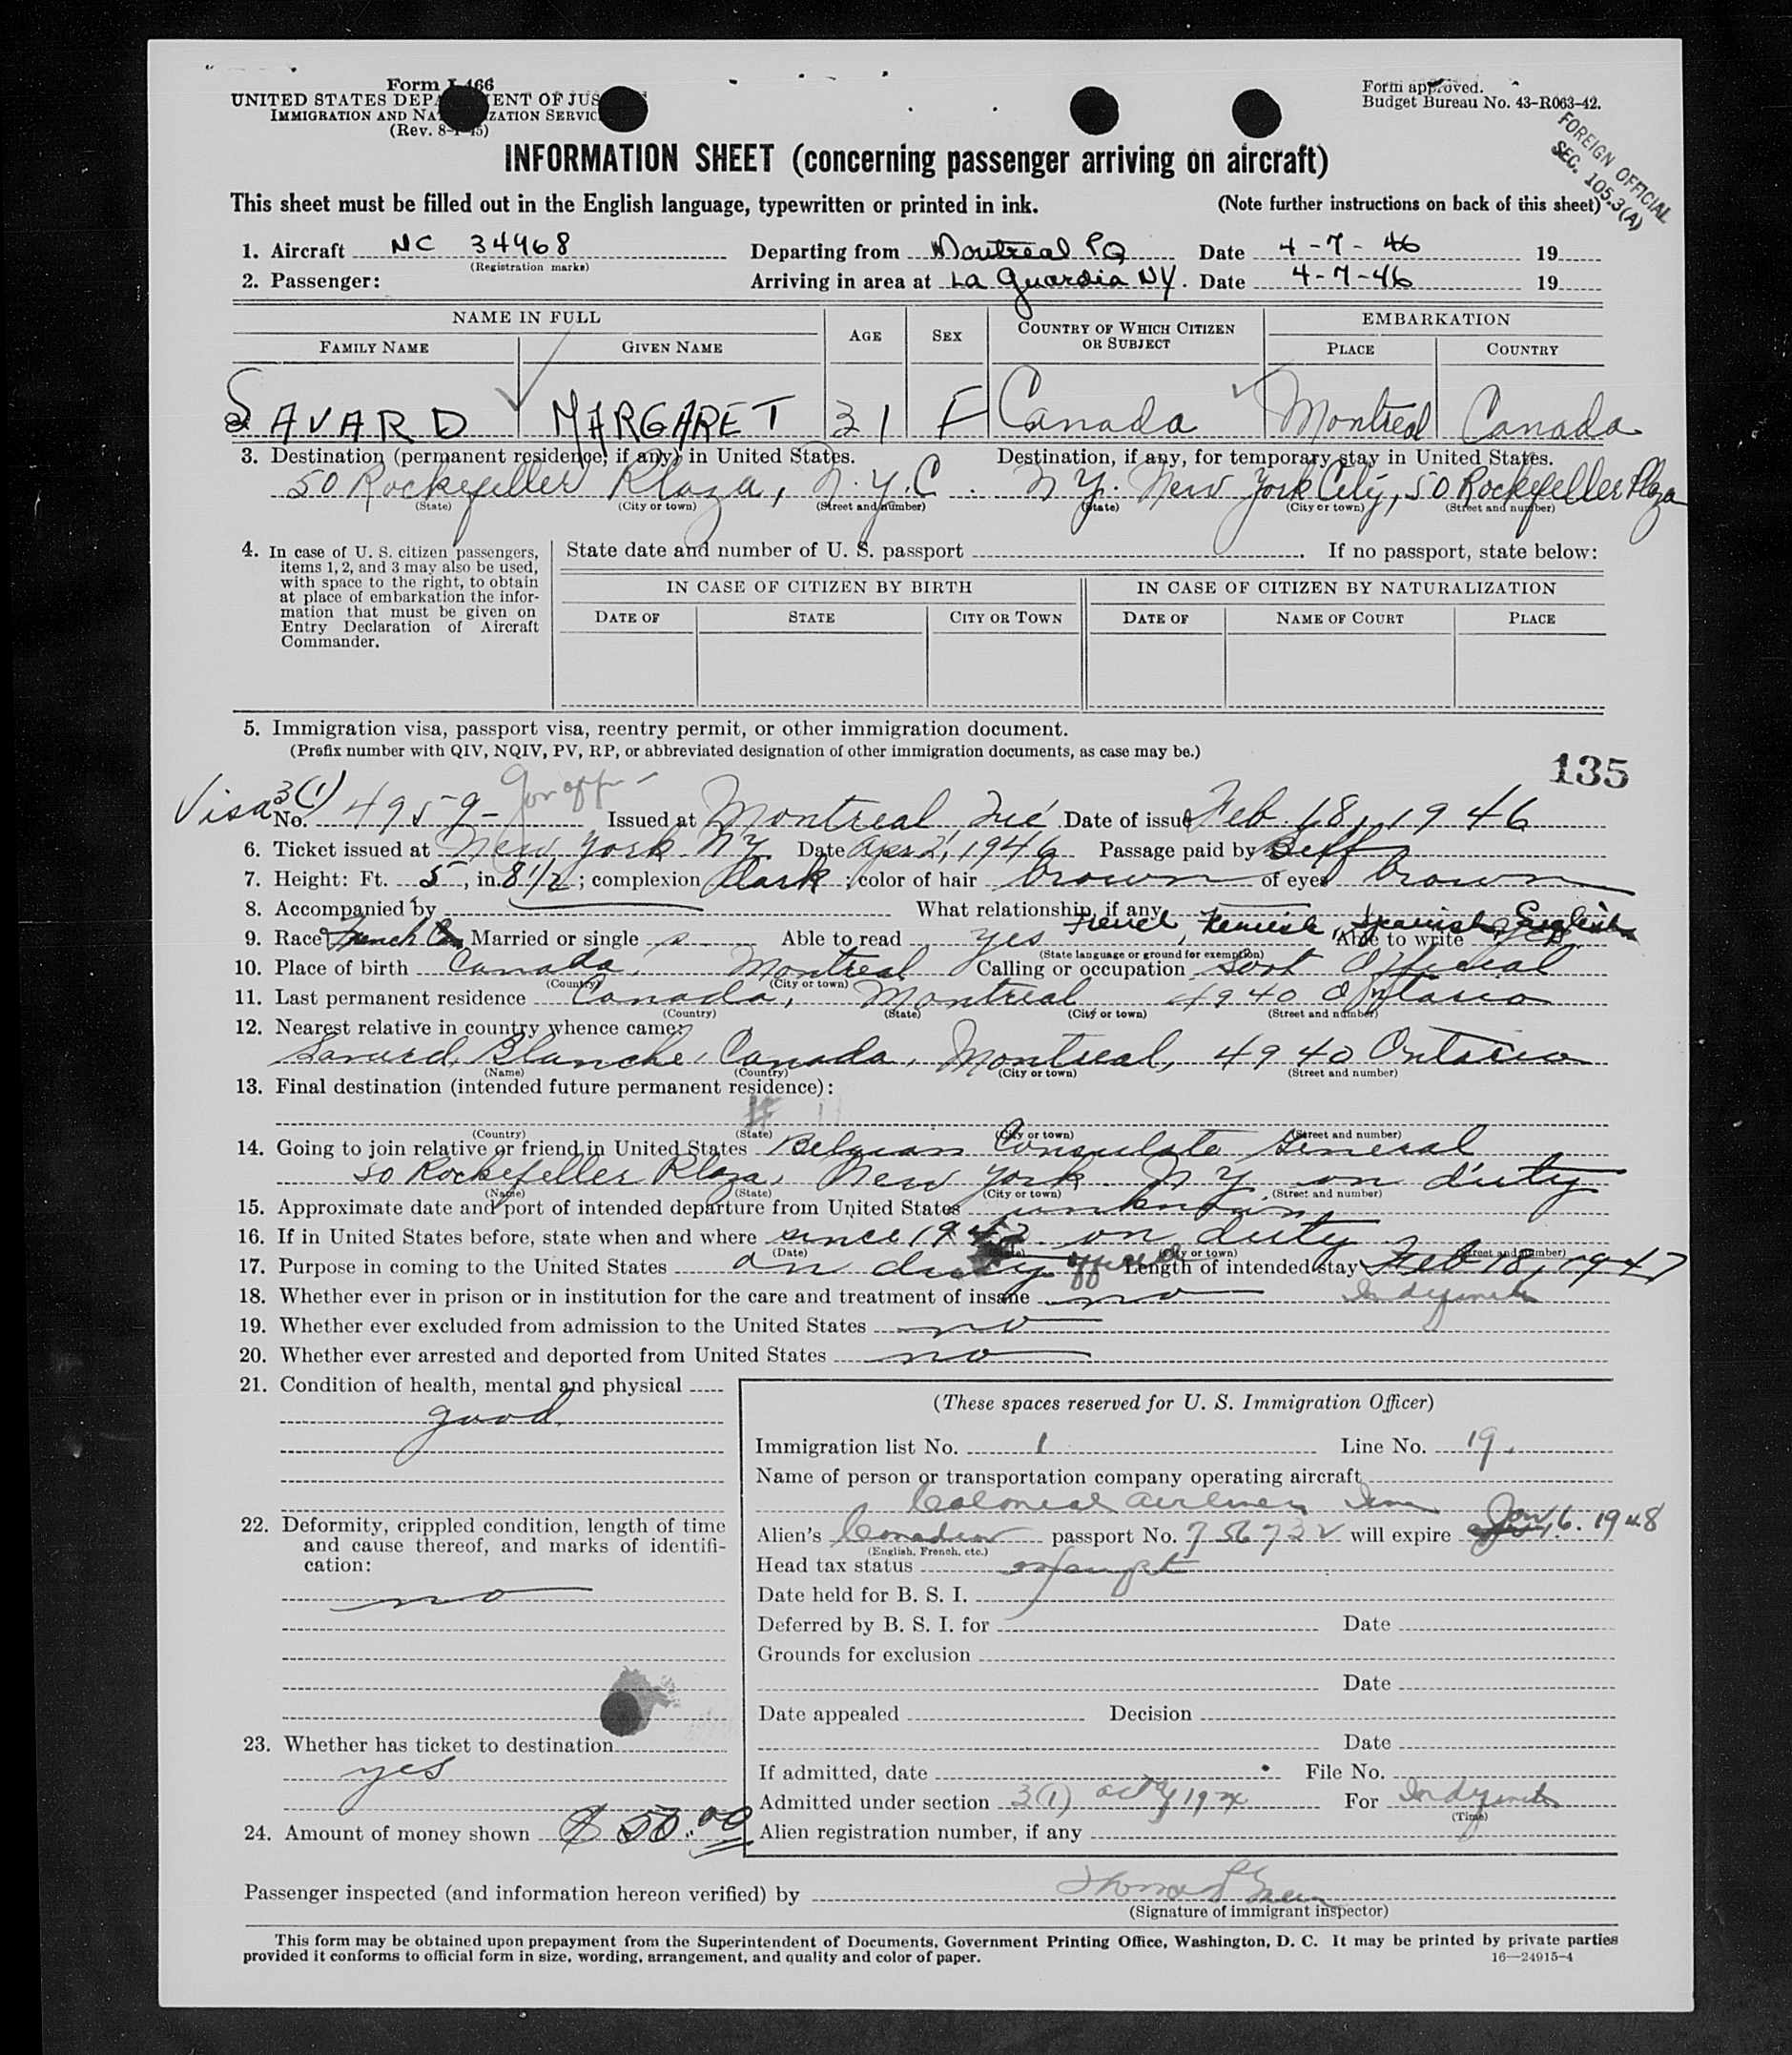 Form I-466
UNITED STATES DEPARTMENT OF JUSTICE
IMMIGRATION AND NATURALIZATION SERVICE
(Rev. 8-1-45)
Form approved.
Budget Bureau No. 43-R063-42.
FOREIGN OFFICIAL
SEC. 105.3(A)
INFORMATION SHEET (concerning passenger arriving on aircraft)
This sheet must be filled out in the English language, typewritten or printed in ink. (Note further instructions on back of this sheet)
1. Aircraft NC 34968 Departing from Montreal PQ Date 4-7-46 19
(Registration marks)
2. Passenger: Arriving in area at La Guardia NY. Date 4-7-46 19
NAME IN FULL AGE SEX COUNTRY OF WHICH CITIZEN OR SUBJECT EMBARKATION
FAMILY NAME GIVEN NAME PLACE COUNTRY
SAVARD MARGARET 31 F Canada Montreal Canada
3. Destination (permanent residence, if any) in United States. Destination, if any, for temporary stay in United States.
50 Rockefeller Plaza, N.Y.C. N.Y. New York City, 50 Rockefeller Plaza
(State) (City or town) (Street and number) (State) (City or town) (Street and number)
4. In case of U. S. citizen passengers, items 1, 2, and 3 may also be used, with space to the right, to obtain at place of embarkation the information that must be given on Entry Declaration of Aircraft Commander.
State date and number of U. S. passport . If no passport, state below:
IN CASE OF CITIZEN BY BIRTH IN CASE OF CITIZEN BY NATURALIZATION
DATE OF STATE CITY OR TOWN DATE OF NAME OF COURT PLACE
5. Immigration visa, passport visa, reentry permit, or other immigration document.
(Prefix number with QIV, NQIV, PV, RP, or abbreviated designation of other immigration documents, as case may be.)
135
Visa 3(1)
No. 4959- Issued at Montreal, Date of issue Feb. 18, 1946
6. Ticket issued at New York NY Date Apr 2, 1946 Passage paid by Self
7. Height: Ft. 5, in. 8 1/2; complexion dark; color of hair brown of eyes brown
8. Accompanied by What relationship, if any
French, Flemish, Spanish, English
9. Race French Can Married or single s Able to read yes Able to write yes
(State language or ground for exemption)
10. Place of birth Canada, Montreal Calling or occupation Govt Official
(Country) (City or town)
11. Last permanent residence Canada, Montreal 4940 Ontario
(Country) (State) (City or town) (Street and number)
12. Nearest relative in country whence came:
Savard, Blanche, Canada, Montreal, 4940 Ontario
(Name) (Country) (City or town) (Street and number)
13. Final destination (intended future permanent residence):
(Country) (State) (City or town) (Street and number)
14. Going to join relative or friend in United States Belgian Consulate General
50 Rockefeller Plaza, New York N Y on duty
(Name) (State) (City or town) (Street and number)
15. Approximate date and port of intended departure from United States unknown
16. If in United States before, state when and where since 1942 on duty
(Date) (State) (City or town) (Street and number)
17. Purpose in coming to the United States on duty Length of intended stay Feb 18, 1947
18. Whether ever in prison or in institution for the care and treatment of insane no Indefinite
19. Whether ever excluded from admission to the United States no
20. Whether ever arrested and deported from United States no
21. Condition of health, mental and physical
good
22. Deformity, crippled condition, length of time and cause thereof, and marks of identification:
no
23. Whether has ticket to destination
yes
24. Amount of money shown $50.00
(These spaces reserved for U. S. Immigration Officer)
Immigration list No. 1 Line No. 19.
Name of person or transportation company operating aircraft
Colonial Airlines Inc
Alien's Canadian passport No. 756732 will expire Jan 16. 1948
(English, French, etc.)
Head tax status exempt
Date held for B. S. I.
Deferred by B. S. I. for Date
Grounds for exclusion
Date
Date appealed Decision
Date
If admitted, date File No.
Admitted under section 3(1) act of 1924 For Indefinite
(Time)
Alien registration number, if any
Passenger inspected (and information hereon verified) by
(Signature of immigrant inspector)
This form may be obtained upon prepayment from the Superintendent of Documents, Government Printing Office, Washington, D. C. It may be printed by private parties
provided it conforms to official form in size, wording, arrangement, and quality and color of paper.
16—24915-4